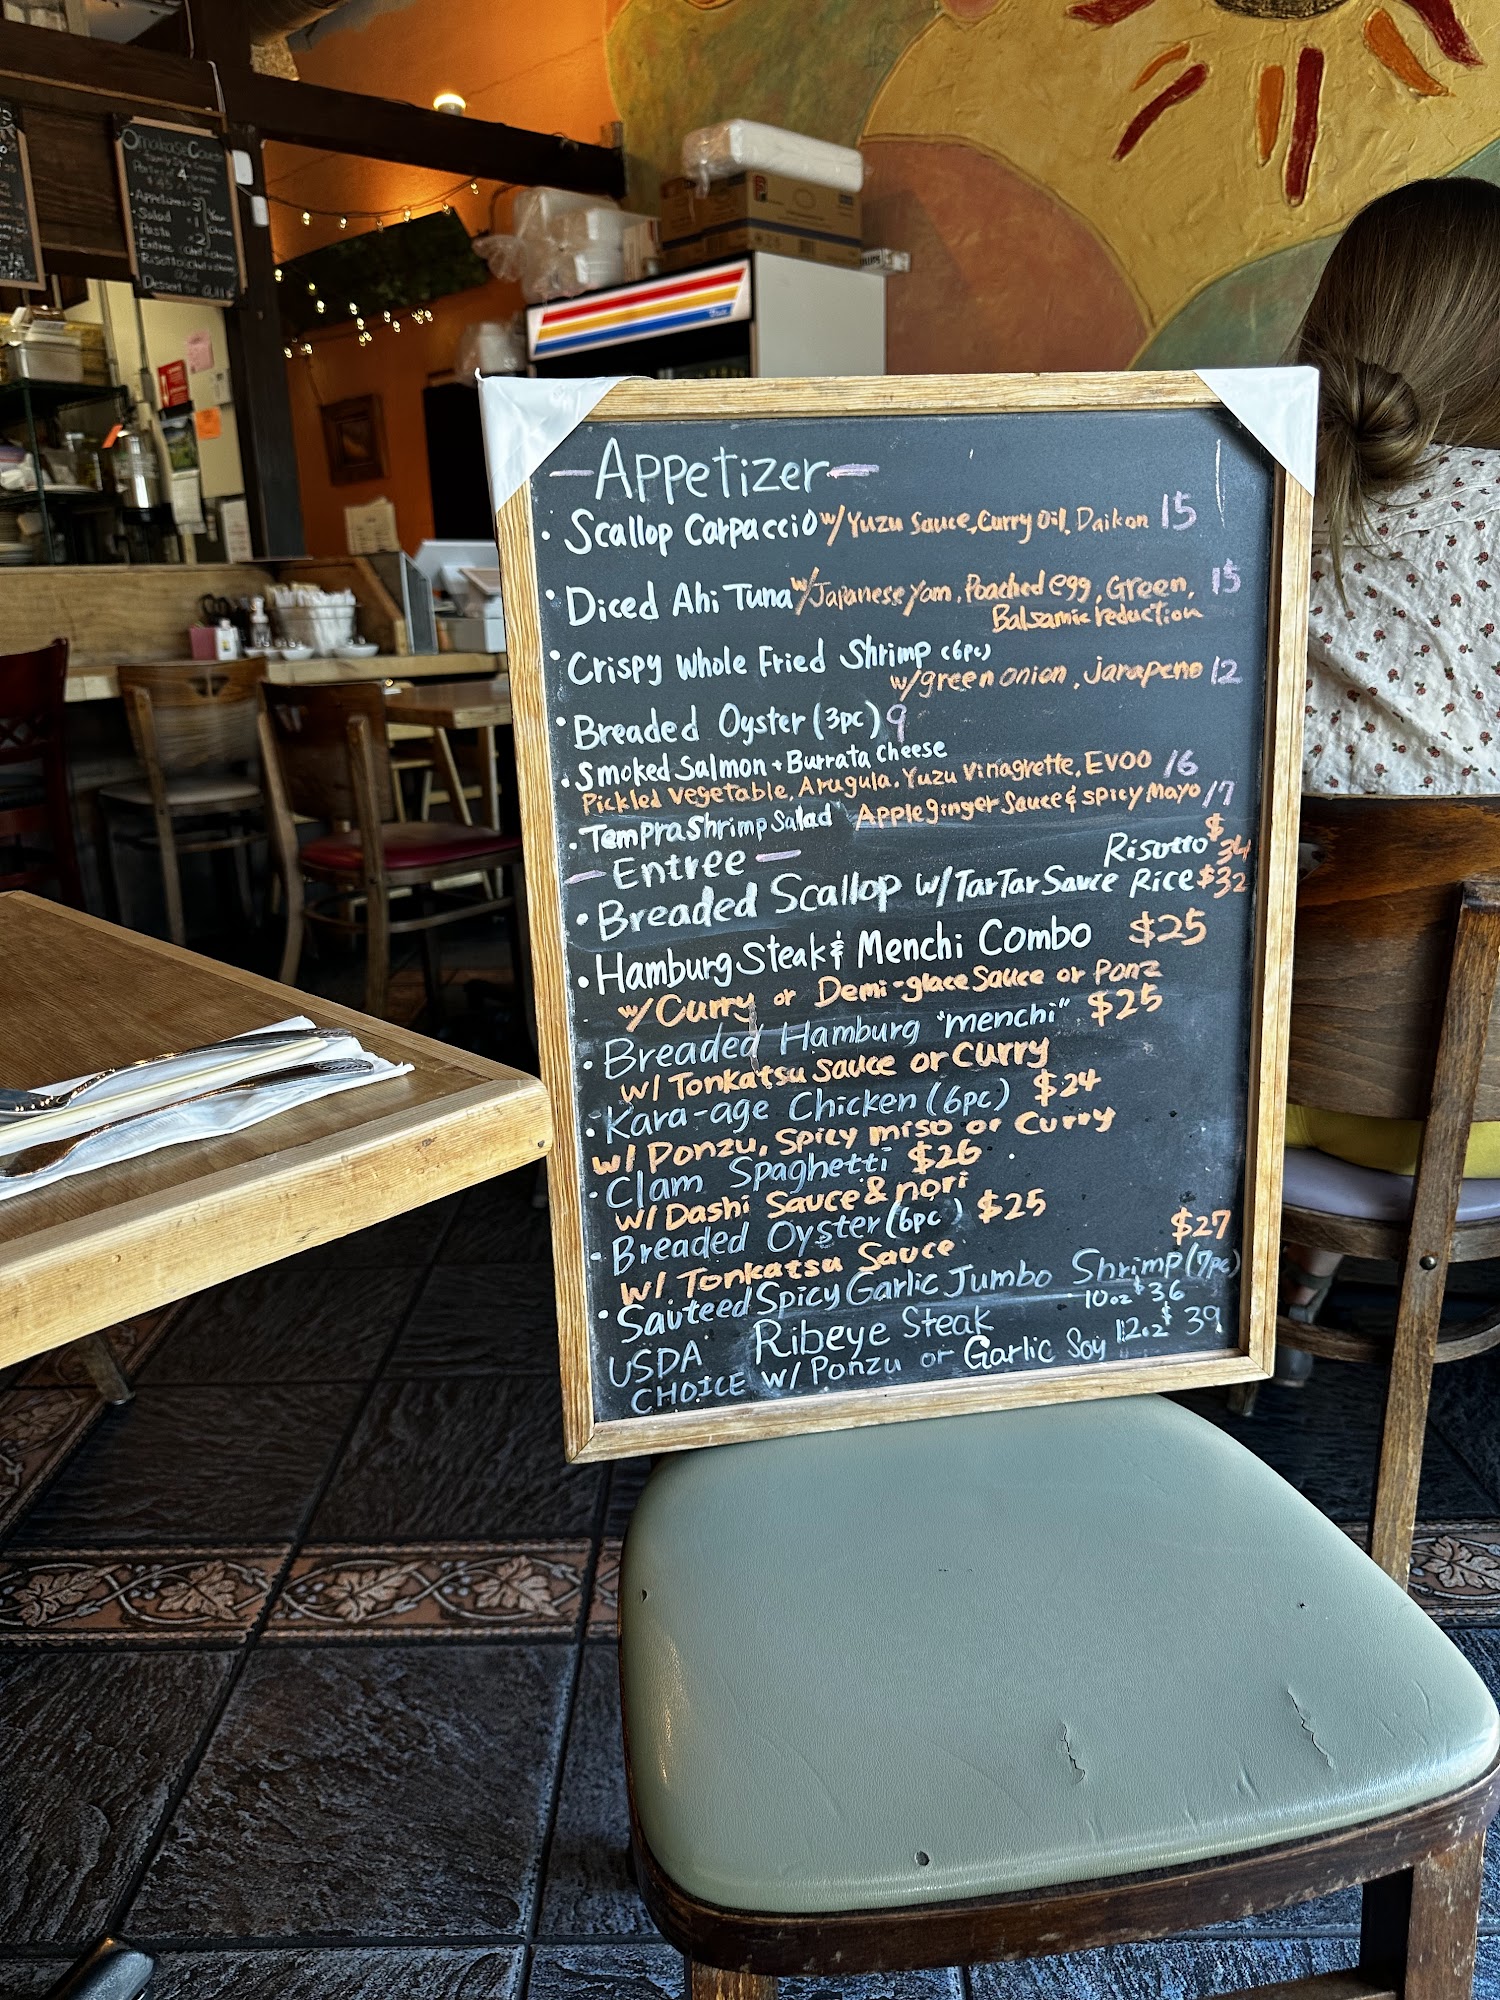 Omakase Course
4
Appetizer 3
Salad 1
Pasta 2
Your
Choice
-Appetizer-
• Scallop Carpaccio w/ Yuzu Sauce, Curry Oil, Daikon 15
• Diced Ahi Tuna w/ Japanese yam, Poached egg, Green, 15
Balsamic reduction
• Crispy Whole Fried Shrimp (6pc)
w/ green onion, Jarapeno 12
• Breaded Oyster (3pc) 9
• Smoked Salmon + Burrata Cheese
Pickled Vegetable, Arugula, Yuzu Vinagrette, EVOO 16
• Tempra Shrimp Salad Apple ginger Sauce & Spicy Mayo 17
-Entree-
Risotto $34
• Breaded Scallop w/ TarTar Sauce Rice $32
• Hamburg Steak & Menchi Combo $25
w/ Curry or Demi-glace Sauce or Ponz
• Breaded Hamburg "menchi" $25
w/ Tonkatsu Sauce or Curry
• Kara-age Chicken (6pc) $24
w/ Ponzu, Spicy miso or Curry
• Clam Spaghetti $26
w/ Dashi Sauce & nori
• Breaded Oyster (6pc) $25
w/ Tonkatsu Sauce
$27
• Sauteed Spicy Garlic Jumbo Shrimp (7pc)
USDA Ribeye Steak 10oz $36
CHOICE w/ Ponzu or Garlic Soy 12oz $39